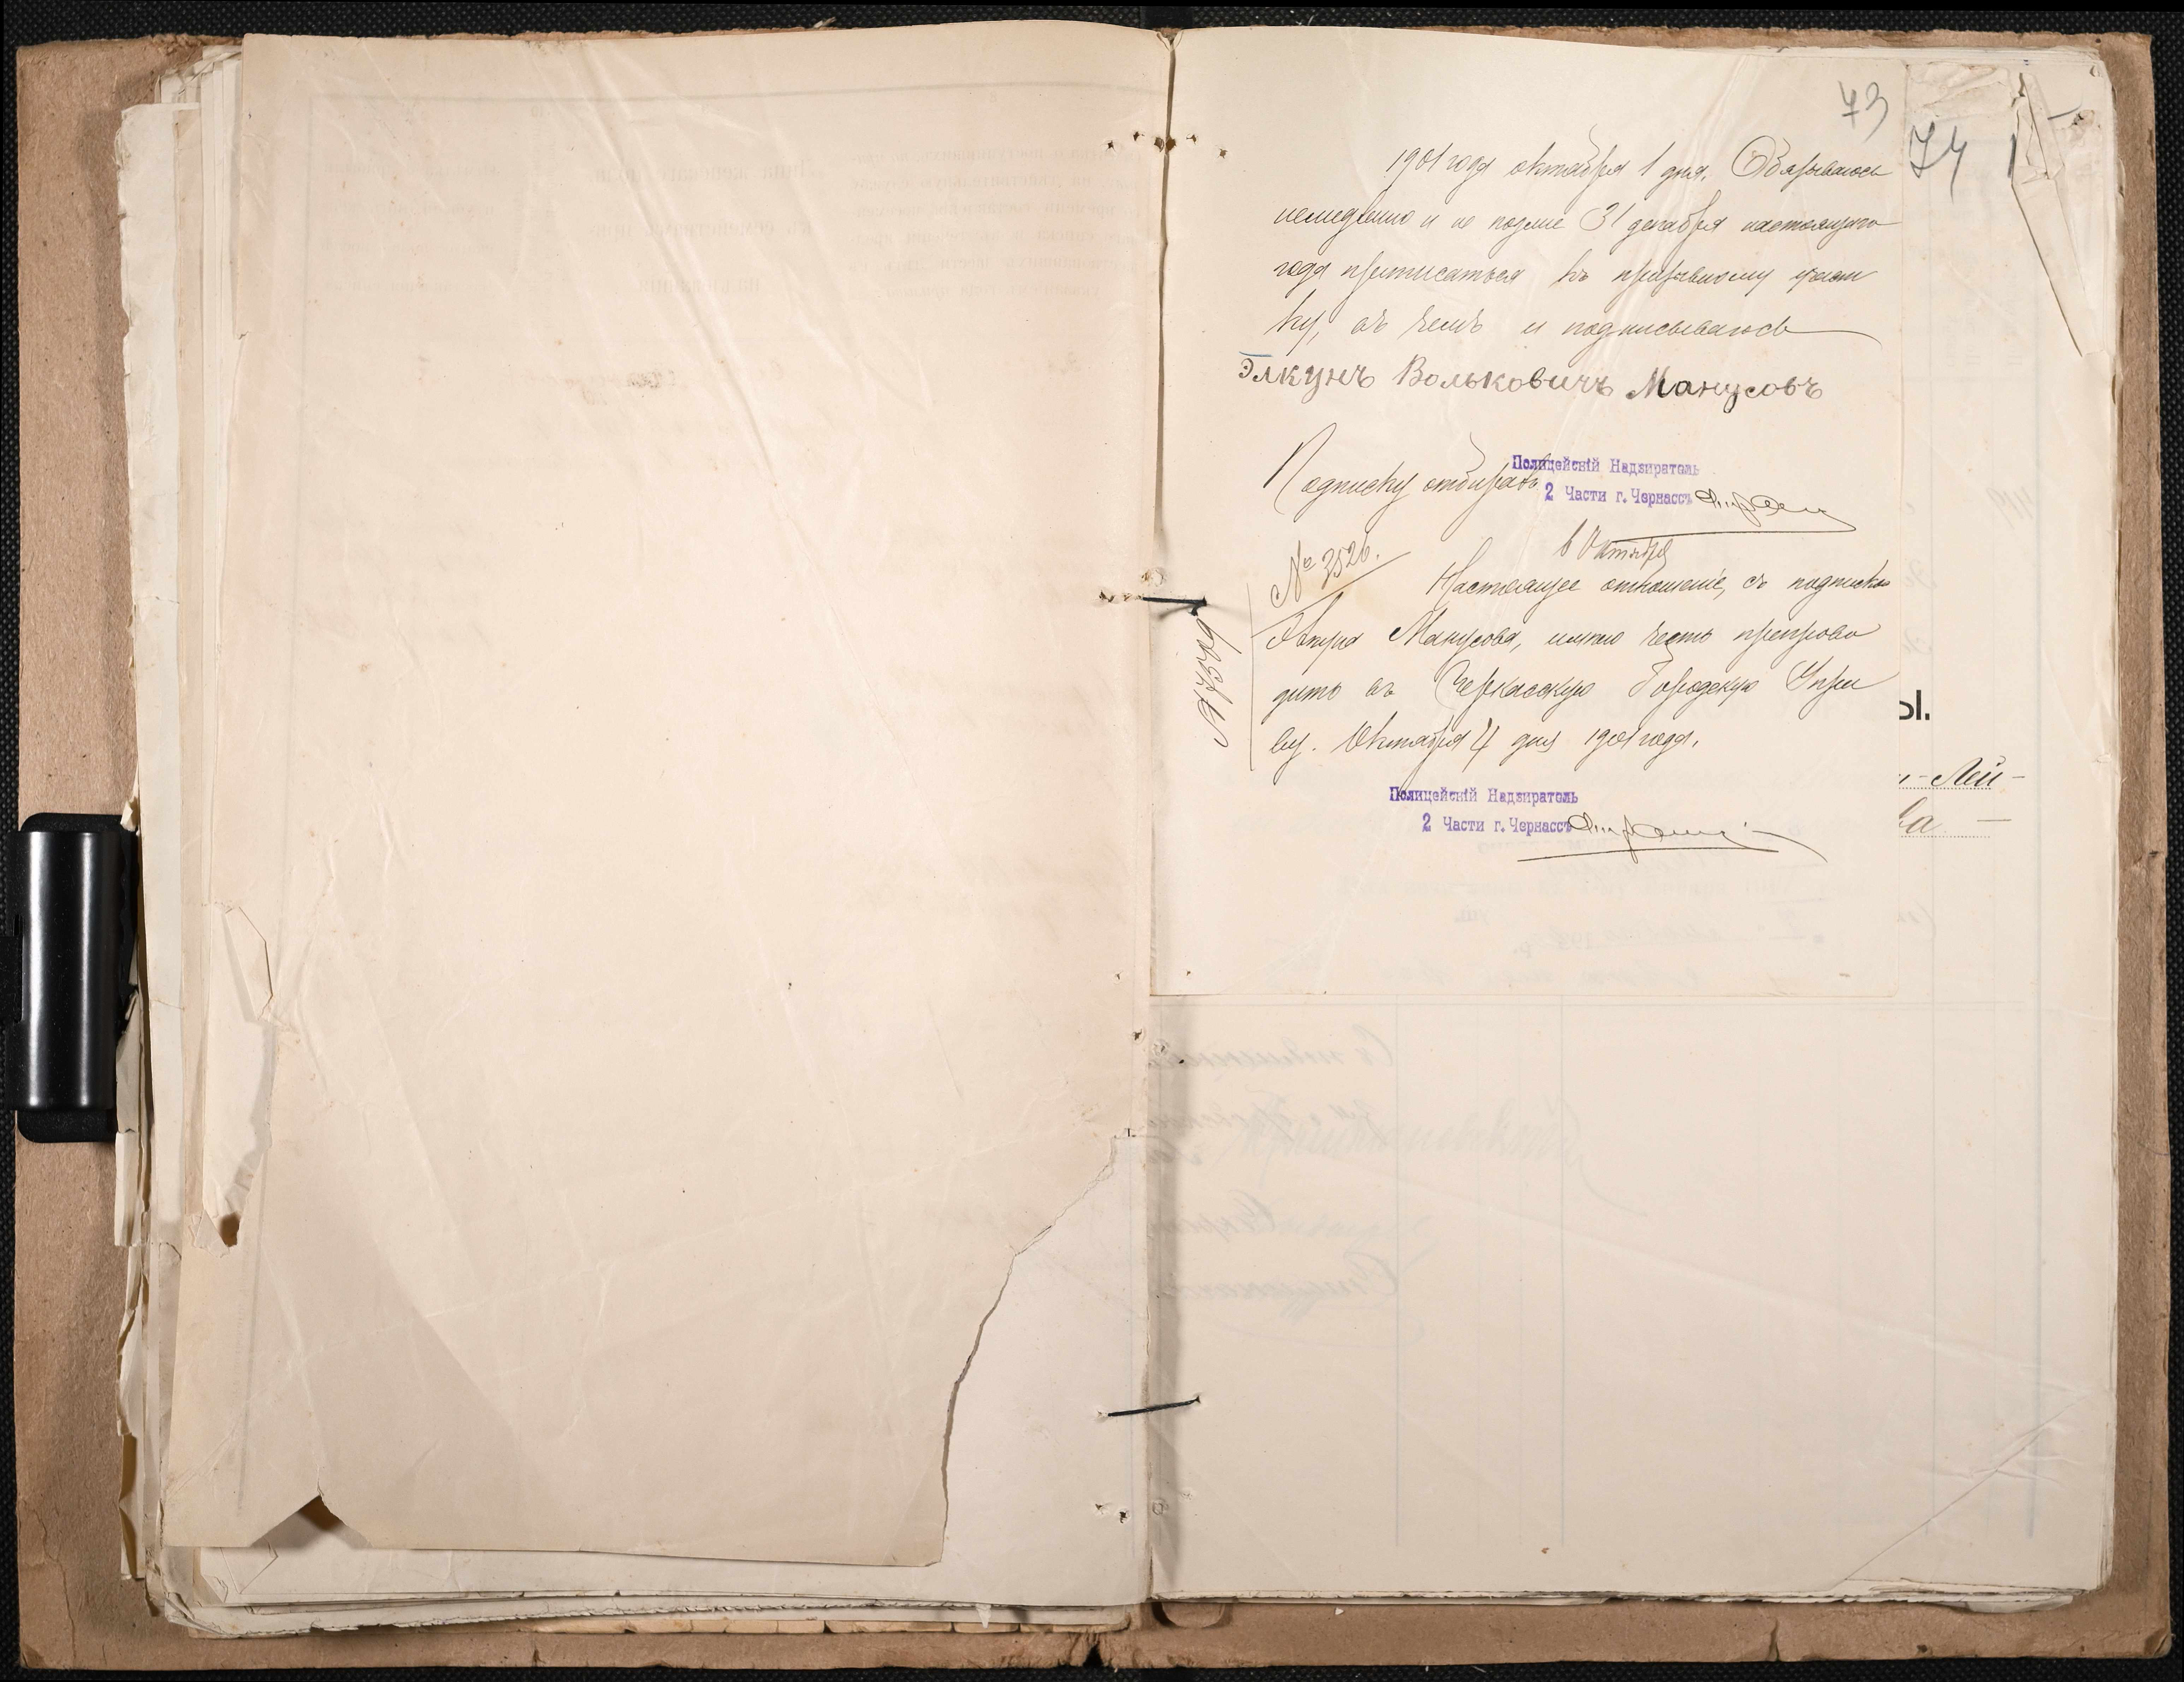 73
74
1901 года октября 1 дня. Обязываюсь
немедленно и не позже 31 декабря настоящаго
года приписаться къ призывному участ
ку, въ чемъ и подписываюсь
Элкунъ Вольковичъ Манусовъ
Подписку отбиралъ
Полицейскій Надзиратель
2 Части г. Черкассъ
6 Октября
№ 3526.
Настоящее отношеніе, съ подпиской
Манусова, имѣю честь препрово
дить въ Черкасскую Городскую Упра
ву. Октября 4 дня 1901 года.
Полицейскій Надзиратель
2 Части г. Черкассъ
ы.
-Лей-
ва